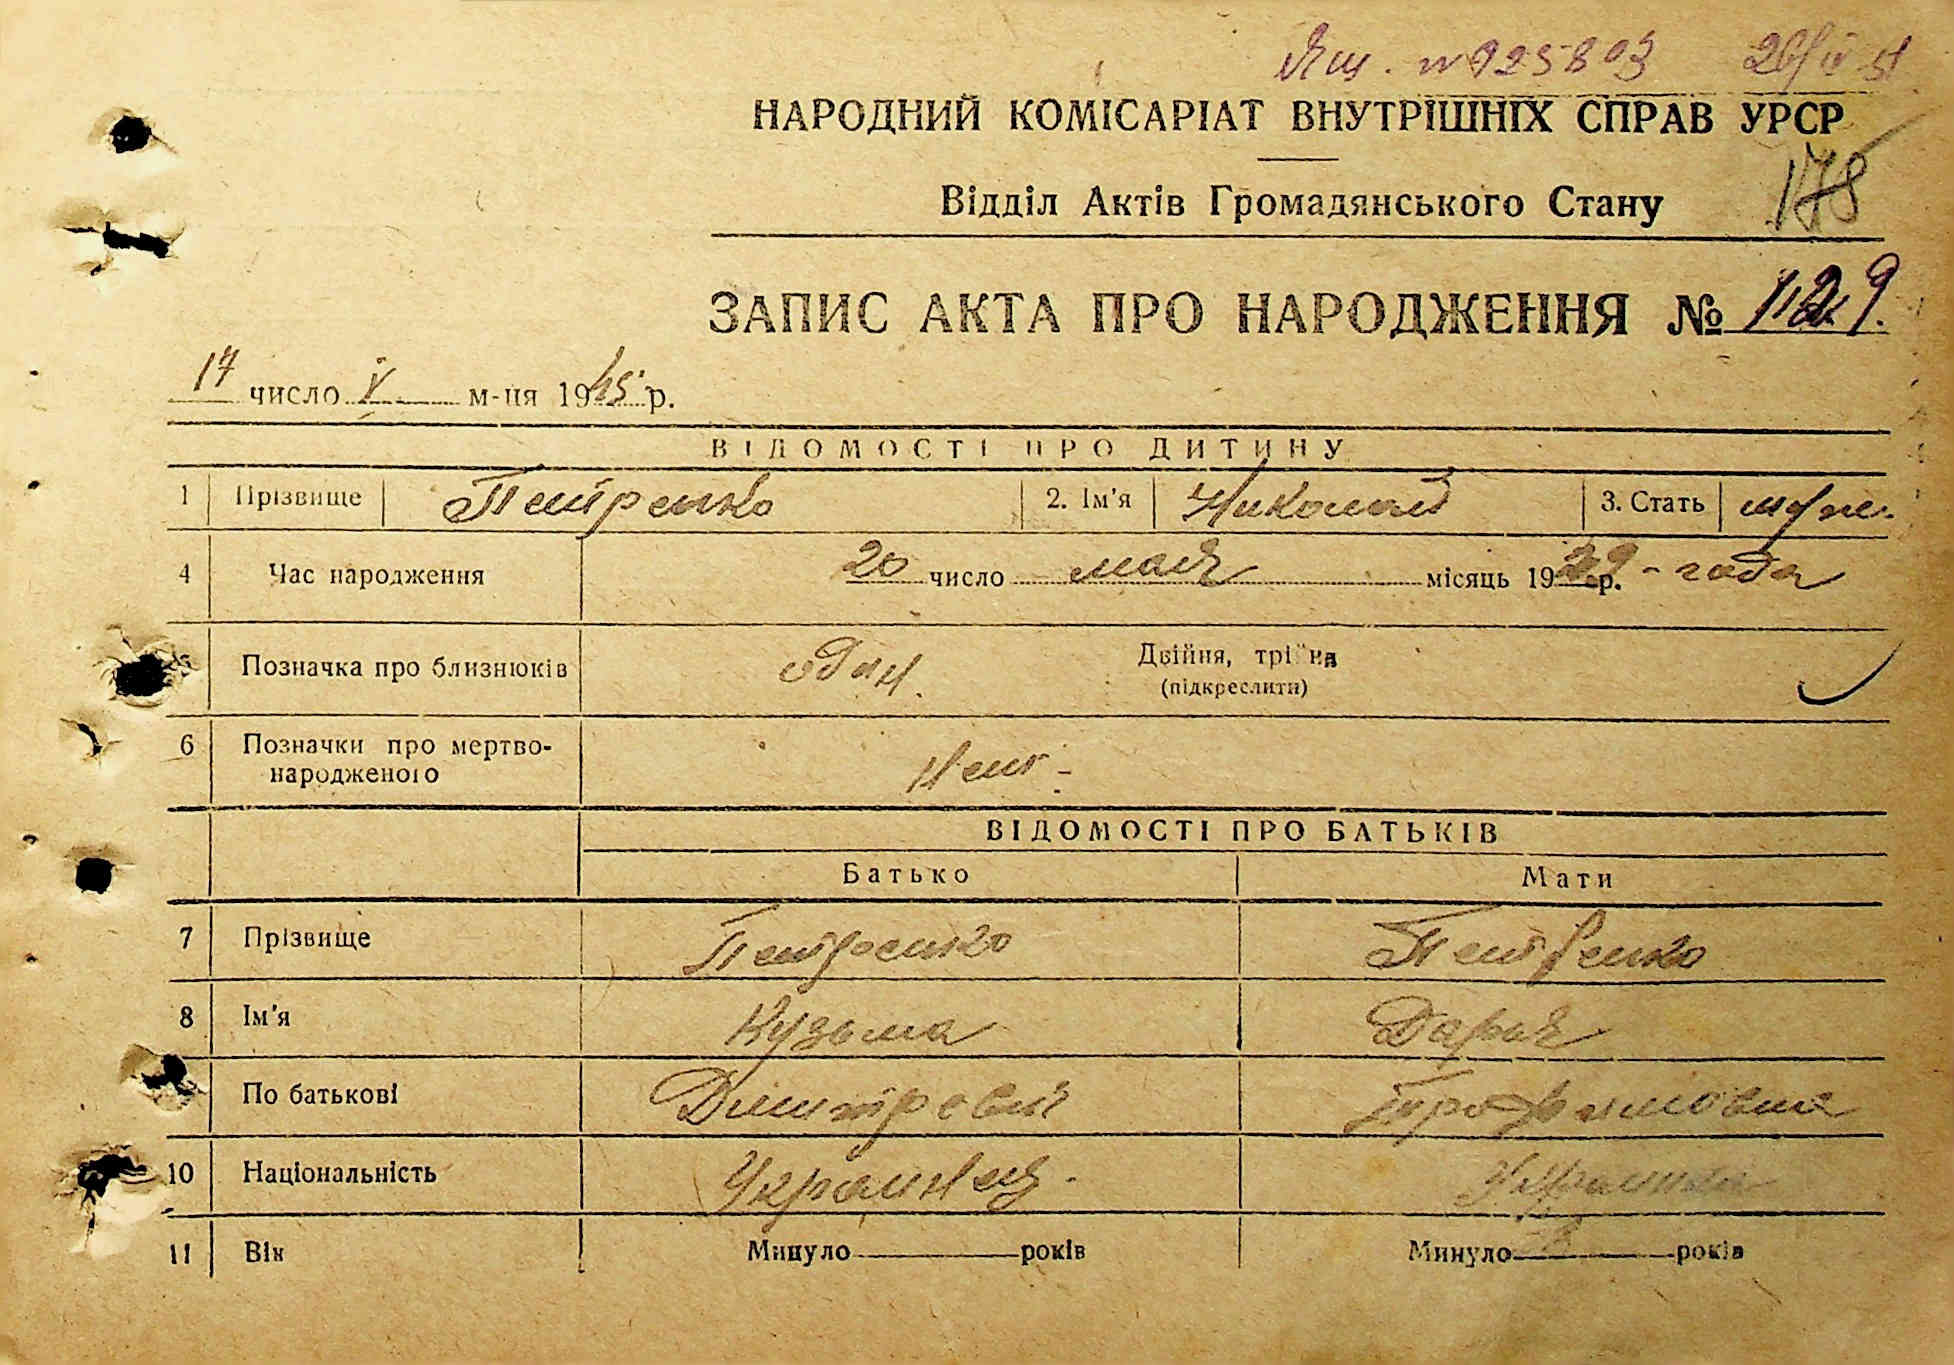 № 925803
НАРОДНИЙ КОМІСАРІАТ ВНУТРІШНІХ СПРАВ УРСР
178
Відділ Актів Громадянського Стану
ЗАПИС АКТА ПРО НАРОДЖЕННЯ № 129.
17 число V м-ця 1945 р.
ВІДОМОСТІ ПРО ДИТИНУ
1 Прізвище Петренко 2. Ім'я Николай 3. Стать муж.
4 Час народження 20 число мая місяць 1929 р. - года
5 Позначка про близнюків один. Двійня, трійня
(підкреслити)
6 Позначки про мертво-
народженого Нет -
ВІДОМОСТІ ПРО БАТЬКІВ
Батько Мати
7 Прізвище Петренко Петренко
8 Ім'я Кузьма Дарья
По батькові Дмитрович Трофимовна
10 Національність Украинец. Украинка
11 Вік Минуло років Минуло років